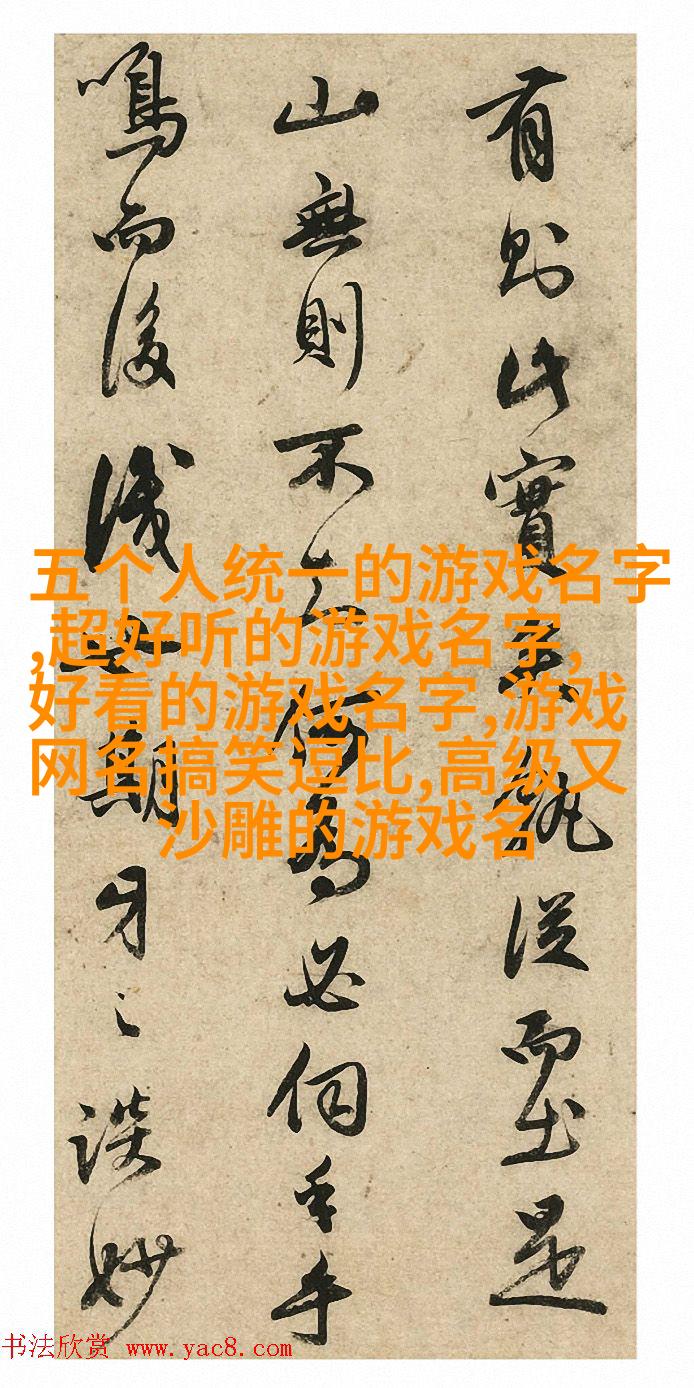 有則此實孰從而出是
山無則不何為必
鳴而後識期談妙
五个人统一的游戏名字
,超好听的游戏名字,
好看的游戏名字,游戏
网名搞笑逗比,高级又
沙雕的游戏名
书法欣赏 www.yac8.com